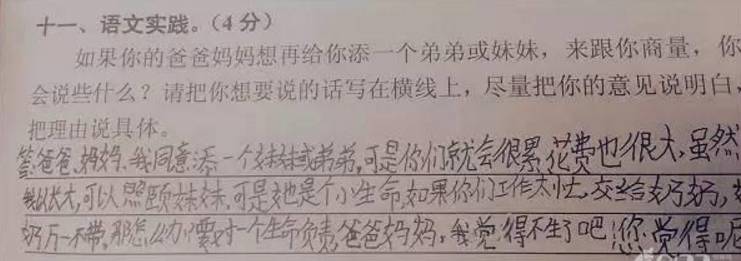 十一、语文实践。(4分)
如果你的爸爸妈妈想再给你添一个弟弟或妹妹，来跟你商量，你
会说些什么？请把你想要说的话写在横线上，尽量把你的意见说明白，
把理由说具体。
答:爸爸、妈妈、我同意添一个妹妹或弟弟,可是你们就会很累,花费也很大,虽然
我以长大,可以照顾妹妹,可是她是个小生命,如果你们工作太忙,交给奶奶,
奶万一不带,那怎么办?要对一个生命负责,爸爸妈妈,我觉得不生了吧!您觉得呢